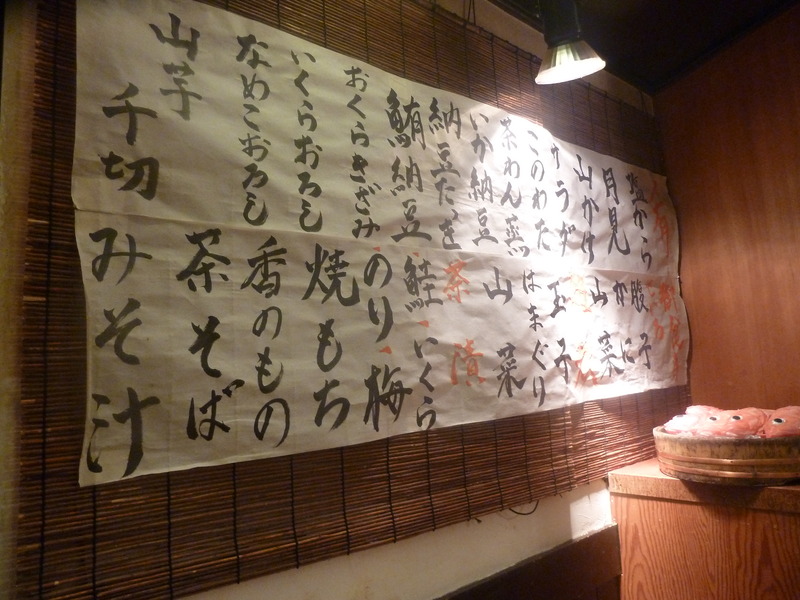 塩から
月見
山かけ
サラダ
このわた
茶わん蒸
いか納豆
納豆たゝき
鮪納豆
おくらきざみ
いくらおろし
なめこおろし
山芋
千切
腹子
かに
山菜
玉子
はまぐり
山菜
茶漬
鮭・いくら
のり・梅
焼もち
香のもの
茶そば
みそ汁